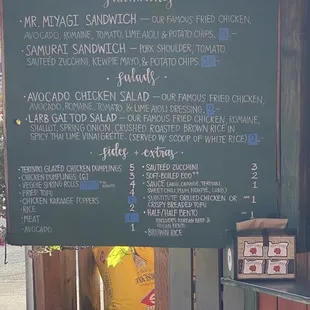 • MR. MIYAGI SANDWICH — OUR FAMOUS FRIED CHICKEN,
AVOCADO, ROMAINE, TOMATO, LIME AIOLI & POTATO CHIPS
• SAMURAI SANDWICH — PORK SHOULDER, TOMATO,
SAUTÉED ZUCCHINI, KEWPIE MAYO, & POTATO CHIPS
salads
• AVOCADO CHICKEN SALAD — OUR FAMOUS FRIED CHICKEN,
AVOCADO, ROMAINE, TOMATO & LIME AIOLI DRESSING
• LARB GAI TOD SALAD — OUR FAMOUS FRIED CHICKEN, ROMAINE,
SHALLOT, SPRING ONION, CRUSHED ROASTED BROWN RICE IN
SPICY THAI LIME VINAIGRETTE. (SERVED W/ SCOOP OF WHITE RICE)
sides + extras
• TERIYAKI GLAZED CHICKEN DUMPLINGS 5
• CHICKEN DUMPLINGS 3
• VEGGIE SPRING ROLLS 4
• FRIED TOFU 4
• CHICKEN KARAAGE POPPERS
• RICE 2
• MEAT
• AVOCADO 1
• SAUTÉED ZUCCHINI 3
• SOFT-BOILED EGG** 2
• SAUCE 1
• SUBSTITUTE GRILLED CHICKEN OR
CRISPY BREADED TOFU
• HALF/HALF BENTO
• BROWN RICE